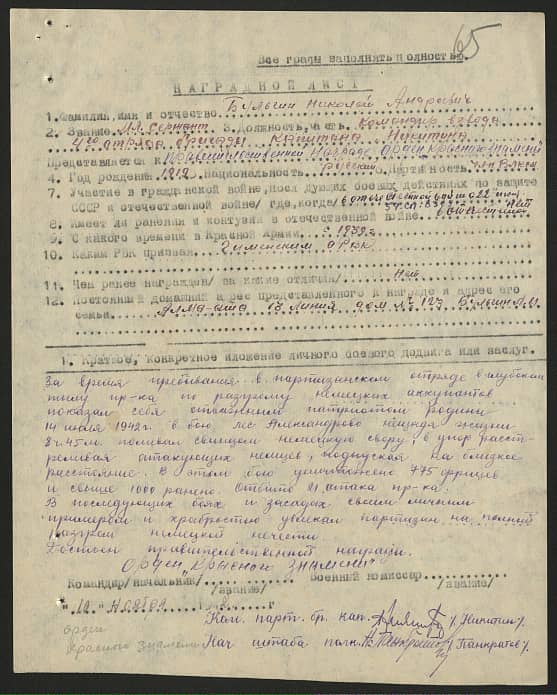 65
Все графы заполнять полностью.
НАГРАДНОЙ ЛИСТ
1. Фамилия, имя и отчество Николай Андреевич
2. Звание Мл. сержант 3. Должность, часть командир взвода
отряда бригады Капитана Никитина
Представляется к Правительственной награде орден Красное Знамя
4. Год рождения 1919 национальность русский партийность
7. Участие в гражданской войне, последующих боевых действиях по защите
СССР и отечественной войне/ где, когда/
8. Имеет ли ранения и контузии в отечественной войне
9. С какого времени в Красной Армии с 1939 г.
10. Каким РВК призван
11. Чем ранее награжден/ за какие отличия/ Нет
12. Постоянный домашний адрес представленного к награде и адрес его
семьи Алма-ата линия дом № 127
1. Краткое, конкретное изложение личного боевого подвига или заслуг.
За время пребывания в партизанском отряде в глубоком
тылу пр-ка по разгрому немецких аккупантов
показал себя отважным патриотом Родины
14 июля 1942 г. в бою лес Александрово
8 ч. 45 м. поливал свинцом немецкую свору, в упор расст-
реливая атакующих немцев, подпуская на близкое
расстояние. В этом бою уничтожено 775 фрицев
и свыше 1000 ранено. Отбито 21 атака пр-ка.
В последующих боях и засадах своим личным
примером и храбростью увлекал партизан на полный
разгром немецкой нечисти.
Достоин правительственной награды.
Орден „Красного Знамени"
Командир/начальник/ Военный комиссар
/звание/ /звание/
ноября г
Ком. парт. бр. кап. /Никитин/
орден
Красного знамени
Нач штаба полк. /Панкратов/